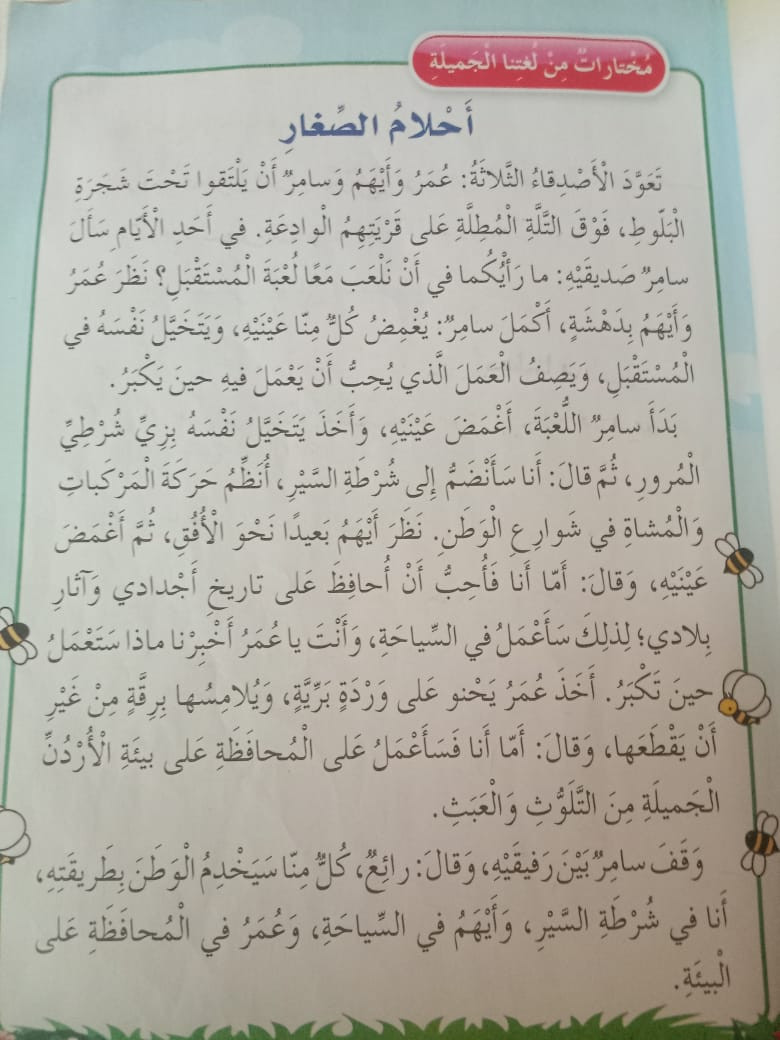 مُخْتاراتٌ مِنْ لُغَتِنا الْجَميلَةِ
أَحْلامُ الصِّغارِ
تَعَوَّدَ الْأَصْدِقاءُ الثَّلاثَةُ: عُمَرُ وَأَيْهَمُ وَسامِرٌ أَنْ يَلْتَقوا تَحْتَ شَجَرَةِ
الْبَلّوطِ، فَوْقَ التَّلَّةِ الْمُطِلَّةِ عَلى قَرْيَتِهِمُ الْوادِعَةِ. في أَحَدِ الْأَيّامِ سَأَلَ
سامِرٌ صَديقَيْهِ: ما رَأْيُكُما في أَنْ نَلْعَبَ مَعًا لُعْبَةَ الْمُسْتَقْبَلِ؟ نَظَرَ عُمَرُ
وَأَيْهَمُ بِدَهْشَةٍ، أَكْمَلَ سامِرٌ: يُغْمِضُ كُلٌّ مِنّا عَيْنَيْهِ، وَيَتَخَيَّلُ نَفْسَهُ في
الْمُسْتَقْبَلِ، وَيَصِفُ الْعَمَلَ الَّذي يُحِبُّ أَنْ يَعْمَلَ فيهِ حينَ يَكْبَرُ.
بَدَأَ سامِرٌ اللُّعْبَةَ، أَغْمَضَ عَيْنَيْهِ، وَأَخَذَ يَتَخَيَّلُ نَفْسَهُ بِزِيِّ شُرْطِيِّ
الْمُرورِ، ثُمَّ قالَ: أَنا سَأَنْضَمُّ إِلى شُرْطَةِ السَّيْرِ، أُنَظِّمُ حَرَكَةَ الْمَرْكَباتِ
وَالْمُشاةِ في شَوارِعِ الْوَطَنِ. نَظَرَ أَيْهَمُ بَعيدًا نَحْوَ الْأُفُقِ، ثُمَّ أَغْمَضَ
عَيْنَيْهِ، وَقالَ: أَمّا أَنا فَأُحِبُّ أَنْ أُحافِظَ عَلى تاريخِ أَجْدادي وَآثارِ
بِلادي؛ لِذلِكَ سَأَعْمَلُ في السِّياحَةِ، وَأَنْتَ يا عُمَرُ أَخْبِرْنا ماذا سَتَعْمَلُ
حينَ تَكْبَرُ. أَخَذَ عُمَرُ يَحْنو عَلى وَرْدَةٍ بَرِّيَّةٍ، وَيُلامِسُها بِرِقَّةٍ مِنْ غَيْرِ
أَنْ يَقْطَعَها، وَقالَ: أَمّا أَنا فَسَأَعْمَلُ عَلى الْمُحافَظَةِ عَلى بيئَةِ الْأُرْدُنِّ
الْجَميلَةِ مِنَ التَّلَوُّثِ وَالْعَبَثِ.
وَقَفَ سامِرٌ بَيْنَ رَفيقَيْهِ، وَقالَ: رائِعٌ، كُلٌّ مِنّا سَيَخْدِمُ الْوَطَنَ بِطَريقَتِهِ،
أَنا في شُرْطَةِ السَّيْرِ، وَأَيْهَمُ في السِّياحَةِ، وَعُمَرُ في الْمُحافَظَةِ عَلى
الْبيئَةِ.